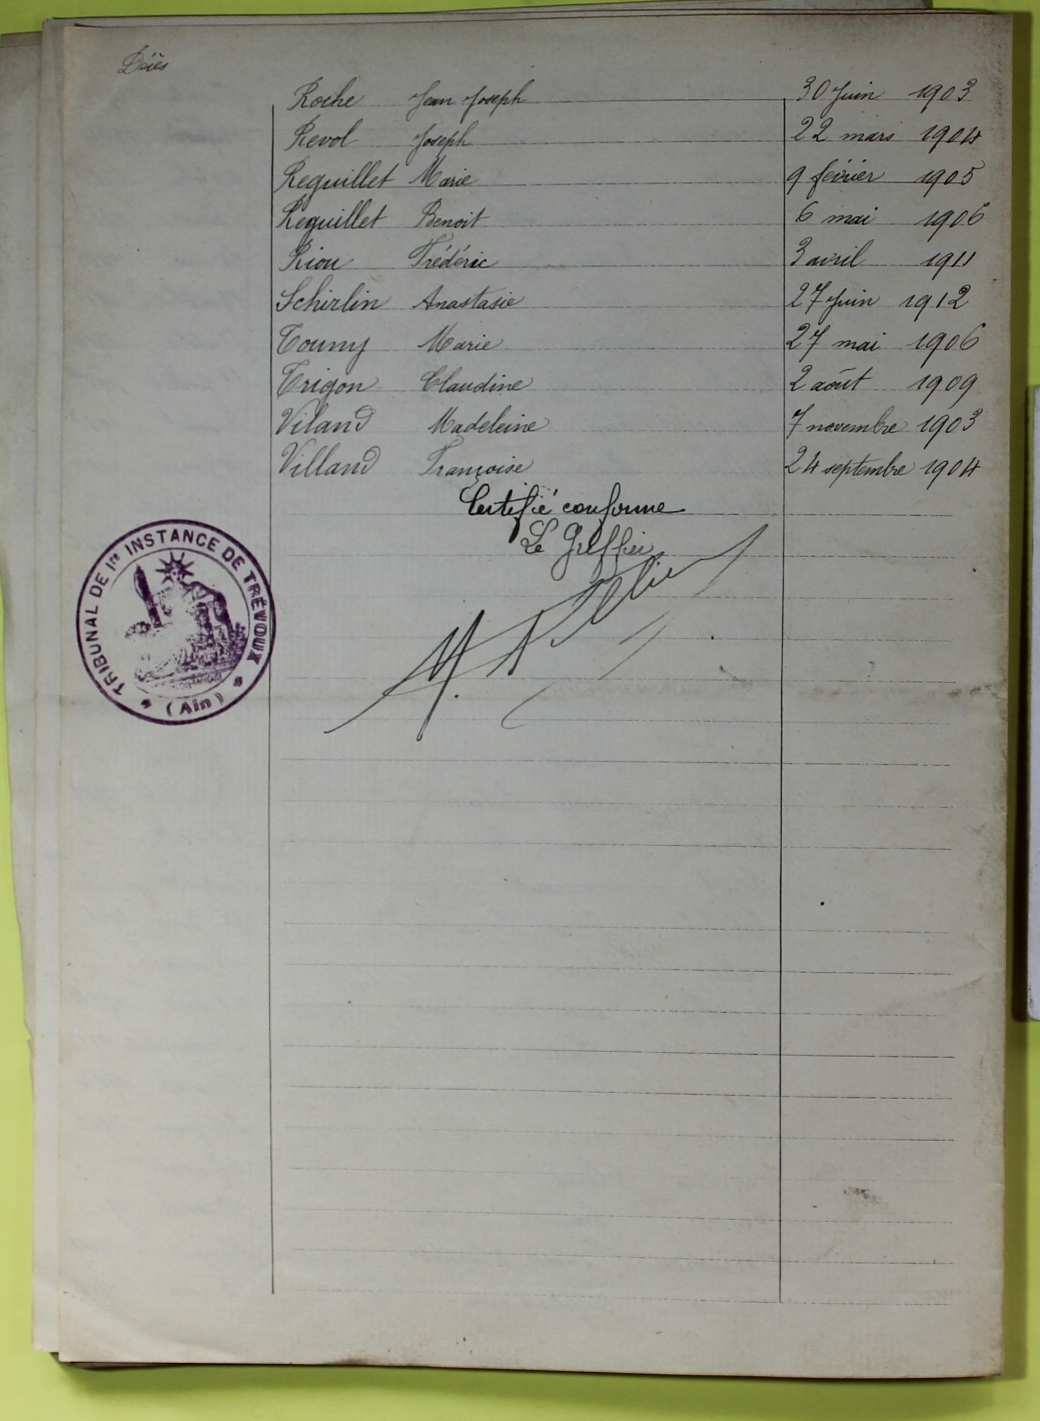 Décès
Roche Jean Joseph 30 Juin 1903
Revol Joseph 22 mars 1904
Reguillet Marie 9 février 1905
Reguillet Benoit 6 mai 1906
Riou Frédéric 3 avril 1911
Schirlin Anastasie 27 Juin 1912
Tourny Marie 27 mai 1906
Trigon Claudine 2 août 1909
Viland Madeleine 7 novembre 1903
Villand Françoise 24 septembre 1904
Certifié conforme
Le Greffier
TRIBUNAL DE 1re INSTANCE DE TRÉVOUX
(Ain)